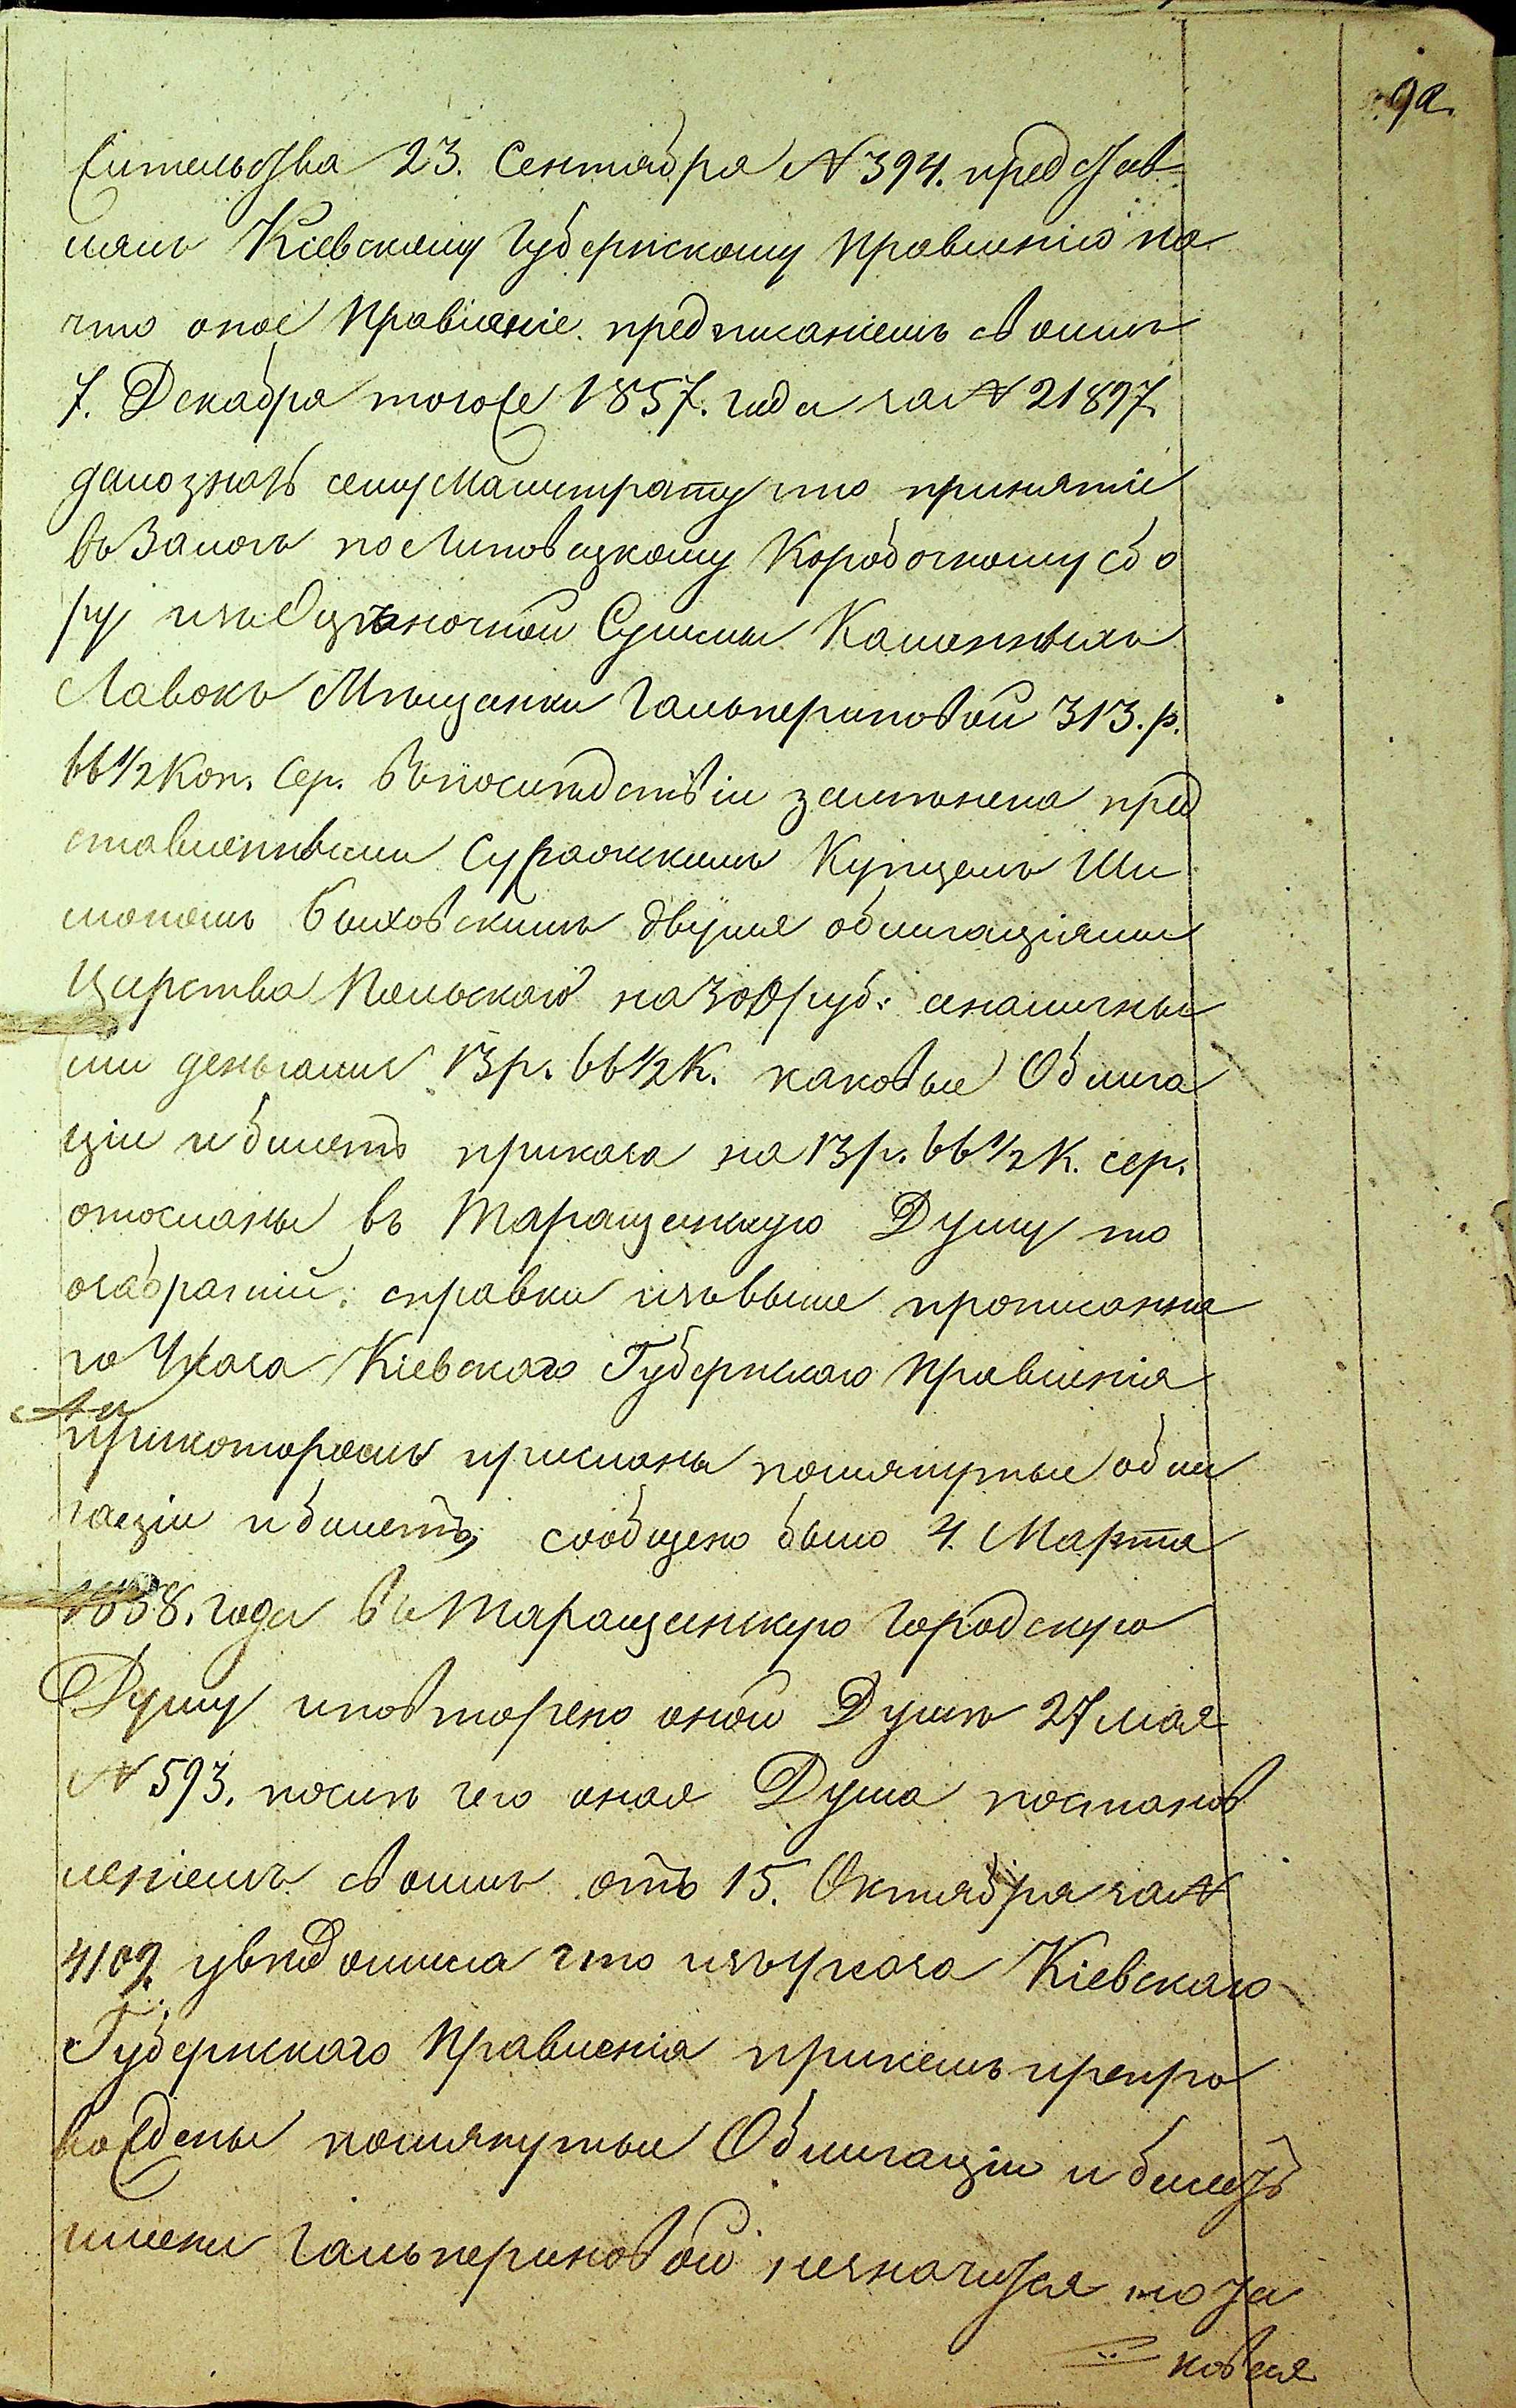 92.
жительства 23. Сентября № 394. представ-
лялъ Кіевскому Губернскому Правленію на
что оное Правленіе предписаніемъ своимъ
7. Декабра тогоже 1857. года за № 21897.
данознать сему Магистрату что принятіе
въ Залогъ по Липовецкому Коробочному сбо
ру изъ Оцѣночной Суммы Каменныхъ
Лавокъ Мѣщанки Гальпериновой 313. р.
66 1/2 Коп. Сер. въпослѣдствіи замѣнена пред
ставленными Суражскимъ Купцемъ Ши
мономъ Быховскимъ двумя облигаціями
Царства Польскаго на 300 руб: и наличны
ми деньгами 13 р. 66 1/2 К. каковые Облига
ціи и билетъ приказа на 13 р. 66 1/2 К. сер.
отосланы въ Таращанскую Думу то
о забраніи справки изъ выше прописанна
го Указа Кіевскаго Губернскаго Правленія
прикоторомъ присланы помянутые обли
гаціи и билетъ, сообщено было 4. Марта
1858. года въ Таращанскую Городскую
Думу и повторено оной Думѣ 27 мая
№ 593. послѣ чего оная Дума постанов
леніемъ своимъ отъ 15. Октября за №
4109. увѣдомила что изъ указа Кіевскаго
Губернскаго Правленія прикемъ препро
вождены помянутые Облигаціи и билетъ
имени Гальпериновой незначится но та
ковыя